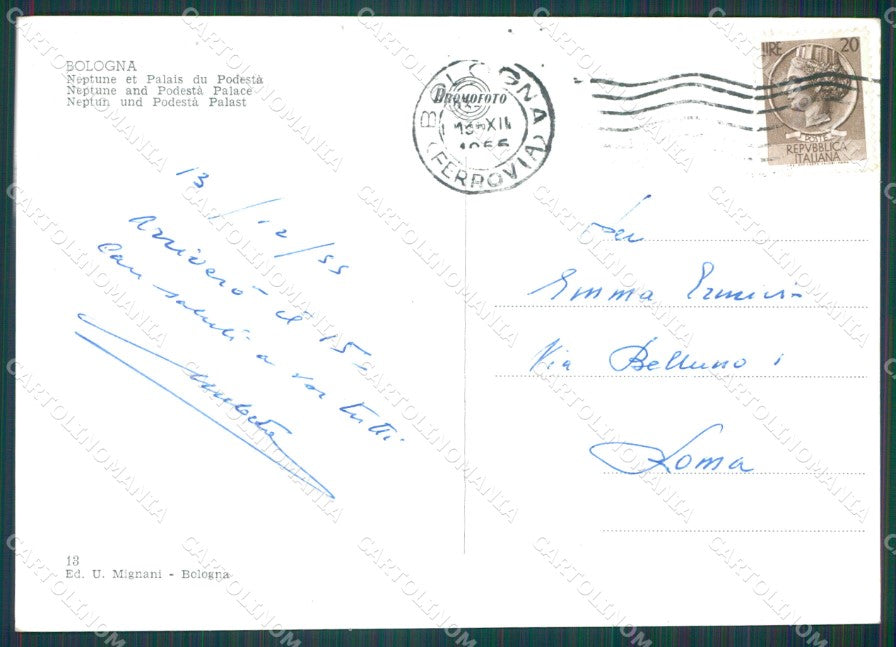 BOLOGNA
Neptune et Palais du Podestà
Neptune and Podestà Palace
Neptun und Podestà Palast
BOLOGNA
PROMOFOTO
(FERROVIA)
LIRE 20
POSTE
REPVBBLICA
ITALIANA
13/12/55
Arriverò il 15-
Cari saluti a voi tutti
Emma
Via Belluno 1
Roma
13
Ed. U. Mignani - Bologna
CARTOLINOMANIA